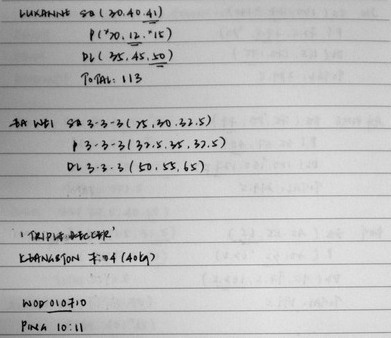 LUKANNE SQ (30, 40, 41)
P (*20, 12, *15)
DL (35, 45, 50)
TOTAL: 113
EA WEI SQ 3-3-3 (25, 30, 32.5)
P 3-3-3 (32.5, 35, 37.5)
DL 3-3-3 (50, 55, 65)
'TRIPLE DECKER'
7:04 (40kg)
WOD 010710
PINA 10:11